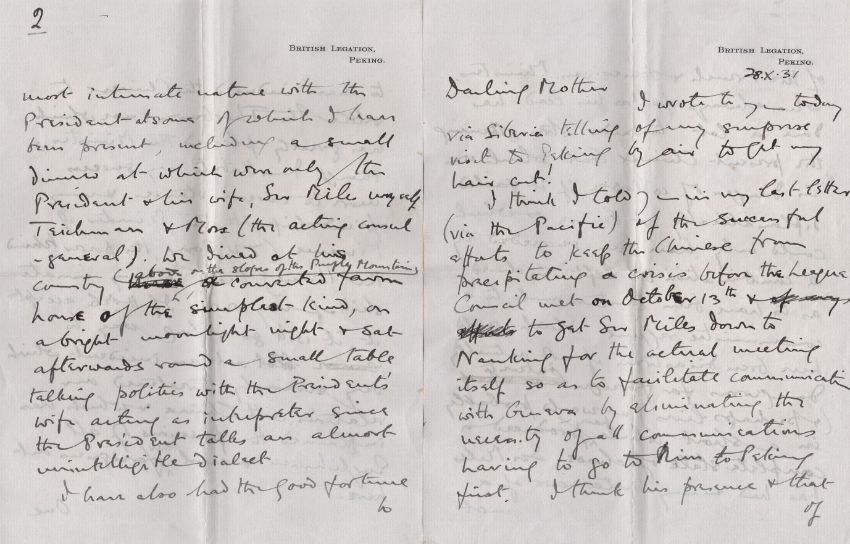 British Legation,
Peking.
28.X.31
Darling Mother
I wrote to you today
via Siberia telling of my surprise
visit to Peking by air to get my
hair cut!
I think I told you in my last letter
(via the Pacific) of the successful
efforts to keep the Chinese from
precipitating a crisis before the League
Council met on October 13th &
to get Sir Miles down to
Nanking for the actual meeting
itself so as to facilitate communication
with Geneva by eliminating the
necessity of all communications
having to go to him to Peking
first. I think his presence & that
of
2
British Legation,
Peking.
most intimate nature with the
President at some of which I have
been present, including a small
dinner at which were only the
President & his wife, Sir Miles myself
Teichman & Moss (the acting consul
-general). We dined at his
country above on the slopes of the Purple Mountain
house a converted farm
house of the simplest kind, on
a bright moonlight night & sat
afterwards round a small table
talking politics with the President's
wife acting as interpreter since
the President talks an almost
unintelligible dialect
I have also had the good fortune
to